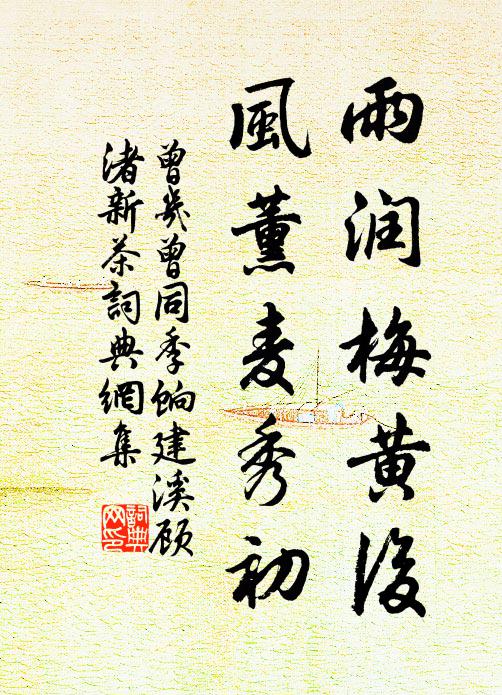 雨润梅黄後
風薰麦秀初
曾幾曾同季餉建溪顾
渚新茶詞典網集
詞典网印